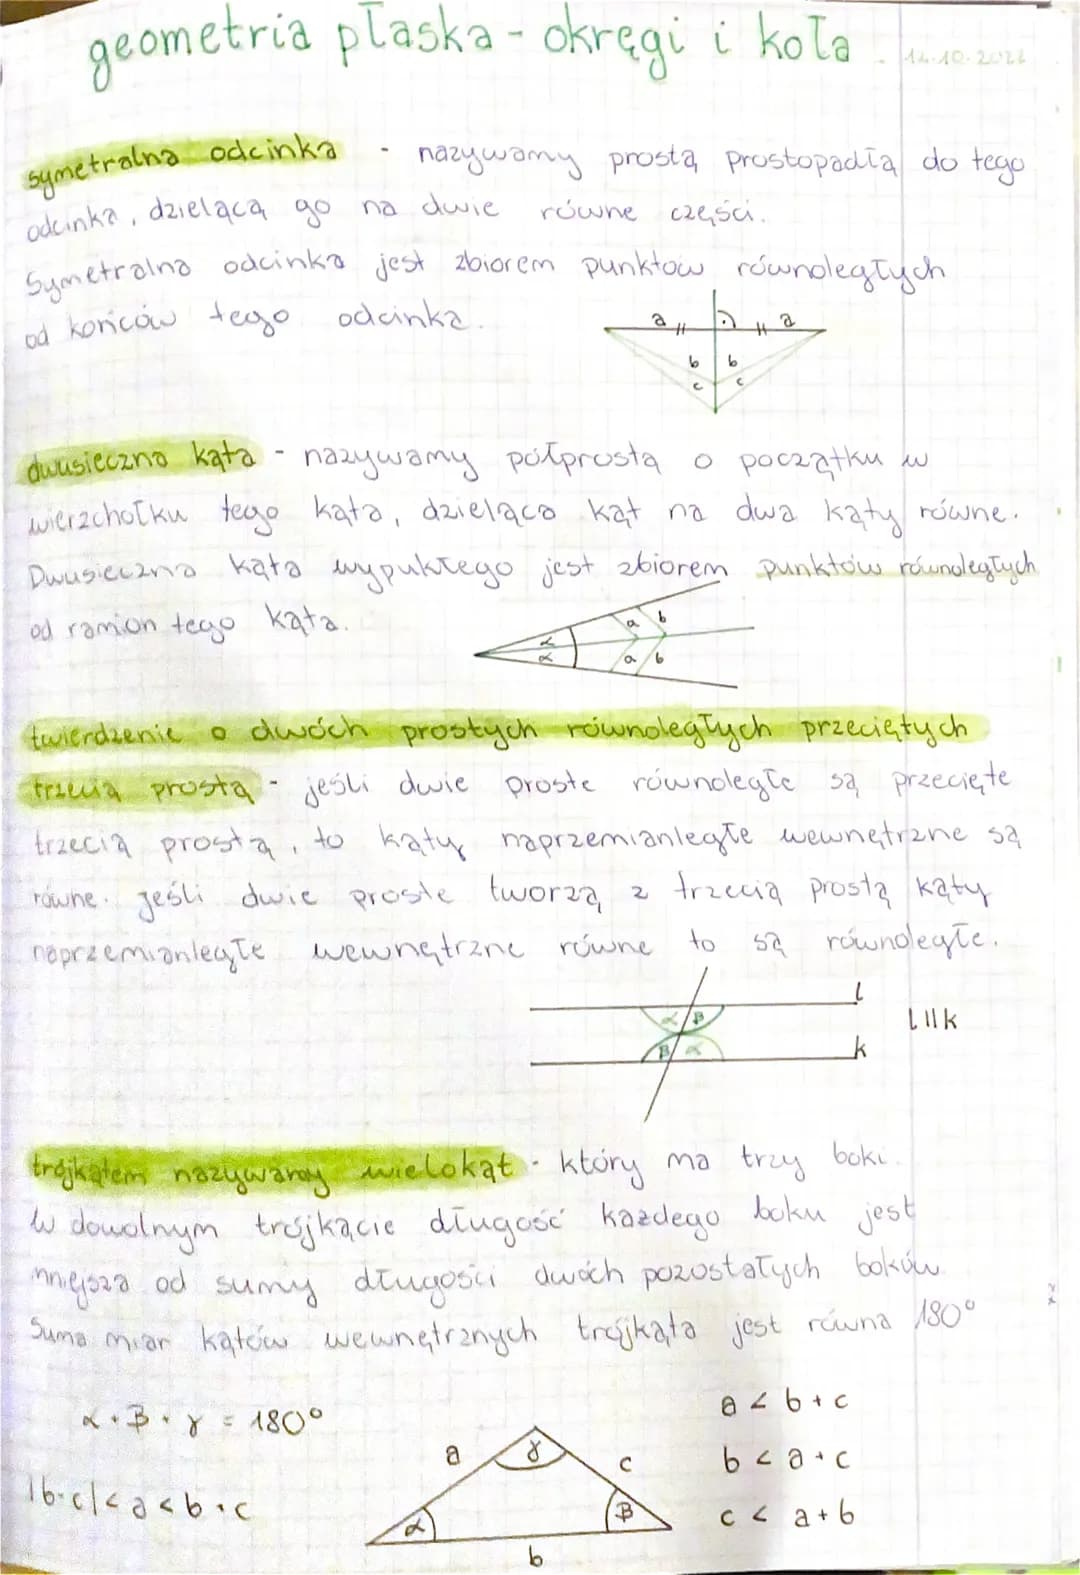 geometria płaska - okręgi i koła 14.10.2022
symetralną odcinka - nazywamy prostą prostopadłą do tego
odcinka, dzielącą go na dwie równe części.
Symetralna odcinka jest zbiorem punktów równoległych
od końców tego odcinka.
a a
b b
c c
dwusieczną kąta - nazywamy półprostą o początku w
wierzchołku tego kąta, dzielącą kąt na dwa kąty równe.
Dwusieczna kąta wypukłego jest zbiorem punktów równoległych
od ramion tego kąta.
a b
α
α a b
twierdzenie o dwóch prostych równoległych przeciętych
trzecią prostą - jeśli dwie proste równoległe są przecięte
trzecią prostą, to kąty naprzemianległe wewnętrzne są
równe. jeśli dwie proste tworzą z trzecią prostą kąty
naprzemianległe wewnętrzne równe to są równoległe.
l
α β l || k
β α k
trójkątem nazywamy wielokąt - który ma trzy boki.
W dowolnym trójkącie długość każdego boku jest
mniejsza od sumy długości dwóch pozostałych boków.
Suma miar kątów wewnętrznych trójkąta jest równa 180°
α + β + γ = 180°
|b-c| < a < b + c
a γ c
α β
b
a < b + c
b < a + c
c < a + b